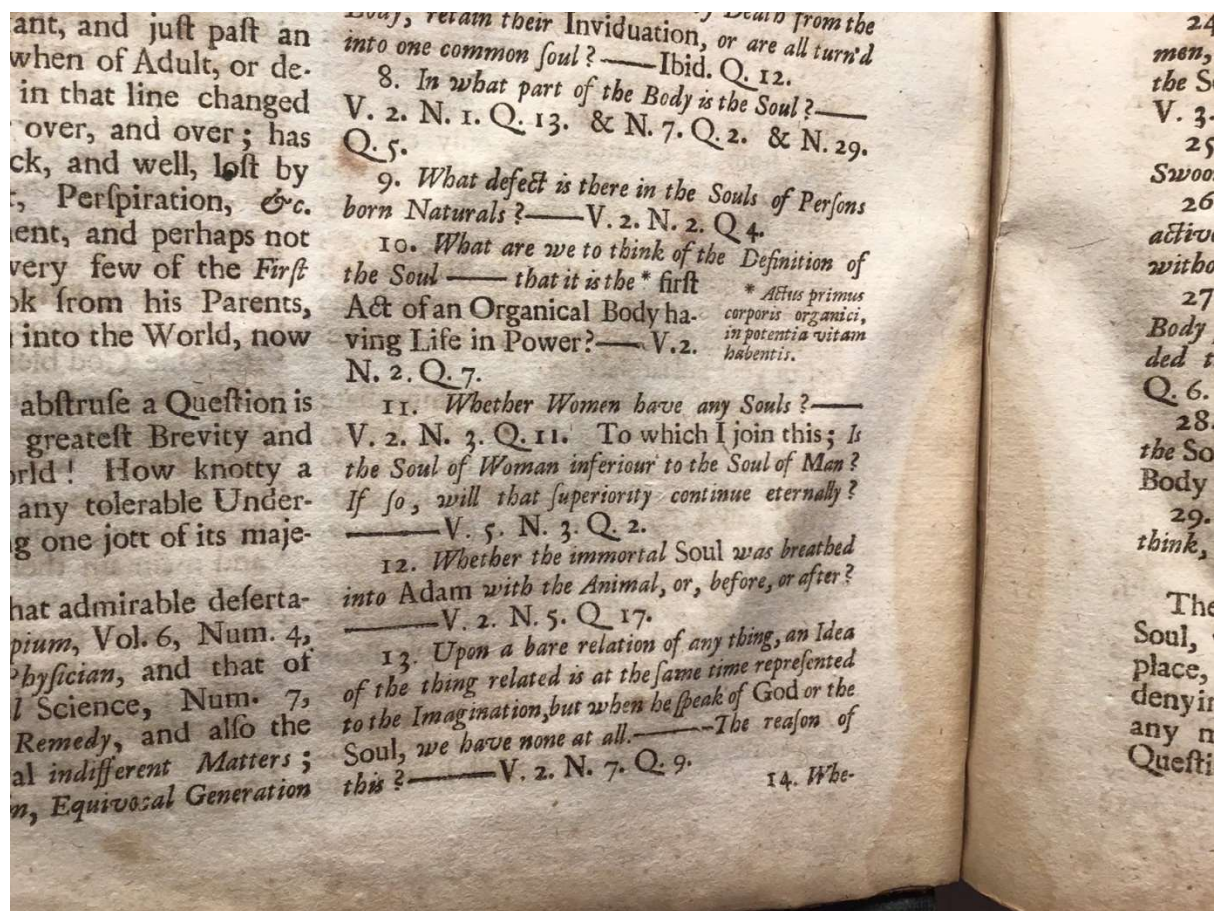 ant, and juſt paſt an
when of Adult, or de-
in that line changed
over, and over; has
ck, and well, loſt by
, Perſpiration, &c.
ent, and perhaps not
very few of the Firſt
ok from his Parents,
into the World, now
abſtruſe a Queſtion is
greateſt Brevity and
orld! How knotty a
any tolerable Under-
g one jott of its maje-
hat admirable deſerta-
pium, Vol. 6, Num. 4,
Phyſician, and that of
l Science, Num. 7,
Remedy, and alſo the
al indifferent Matters;
n, Equivocal Generation
Body, retain their Inviduation, or are all turn'd
Death from the
into one common ſoul?——Ibid. Q. 12.
8. In what part of the Body is the Soul?——
V. 2. N. 1. Q. 13. & N. 7. Q. 2. & N. 29.
Q. 5.
9. What defect is there in the Souls of Perſons
born Naturals?——V. 2. N. 2. Q 4.
10. What are we to think of the Definition of
the Soul —— that it is the * firſt
Act of an Organical Body ha-
ving Life in Power?——V. 2.
N. 2. Q. 7.
* Actus primus
corporis organici,
in potentia vitam
habentis.
11. Whether Women have any Souls?——
V. 2. N. 3. Q. 11. To which I join this; Is
the Soul of Woman inferiour to the Soul of Man?
If ſo, will that ſuperiority continue eternally?
———V. 5. N. 3. Q. 2.
12. Whether the immortal Soul was breathed
into Adam with the Animal, or, before, or after?
———V. 2. N. 5. Q 17.
13. Upon a bare relation of any thing, an Idea
of the thing related is at the ſame time repreſented
to the Imagination, but when he ſpeak of God or the
Soul, we have none at all.———The reaſon of
this?———V. 2. N. 7. Q. 9.
14. Whe-
24
men,
the S
V. 3.
25
Swoo
26
active
witho
27
Body
ded t
Q. 6.
28.
the So
Body
29.
think,
The
Soul,
place,
denyin
any m
Queſti